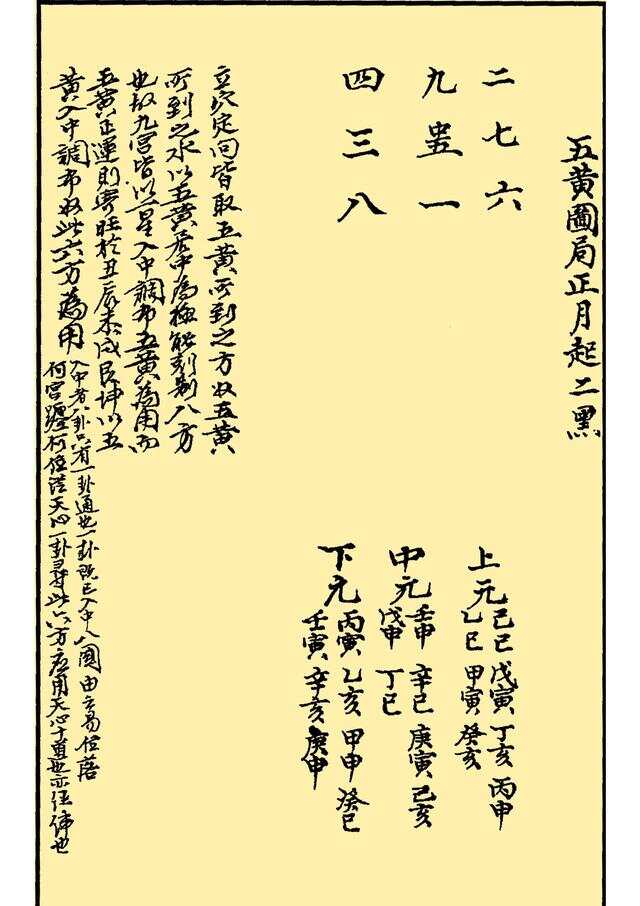 五黄圖局正月起二黑
二七六
九五一
四三八
上元己巳戊寅丁亥丙申
乙巳甲寅癸亥
中元壬申辛巳庚寅己亥
戊申丁巳
下元丙寅乙亥甲申癸巳
壬寅辛亥庚申
立穴定向皆取五黄所到之方收五黄
所到之水以五黄居中為極能刻剝八方
也故九宮皆以一星入中調布五黄為用而
五黄正運則寄旺於丑辰未戌艮坤以五
黄入中調布收此六方為用
入中者八卦只有一卦通也一卦既已入中八國由之易位落
何宮躔何位從天心一卦尋此六方應用天心十道也亦任也